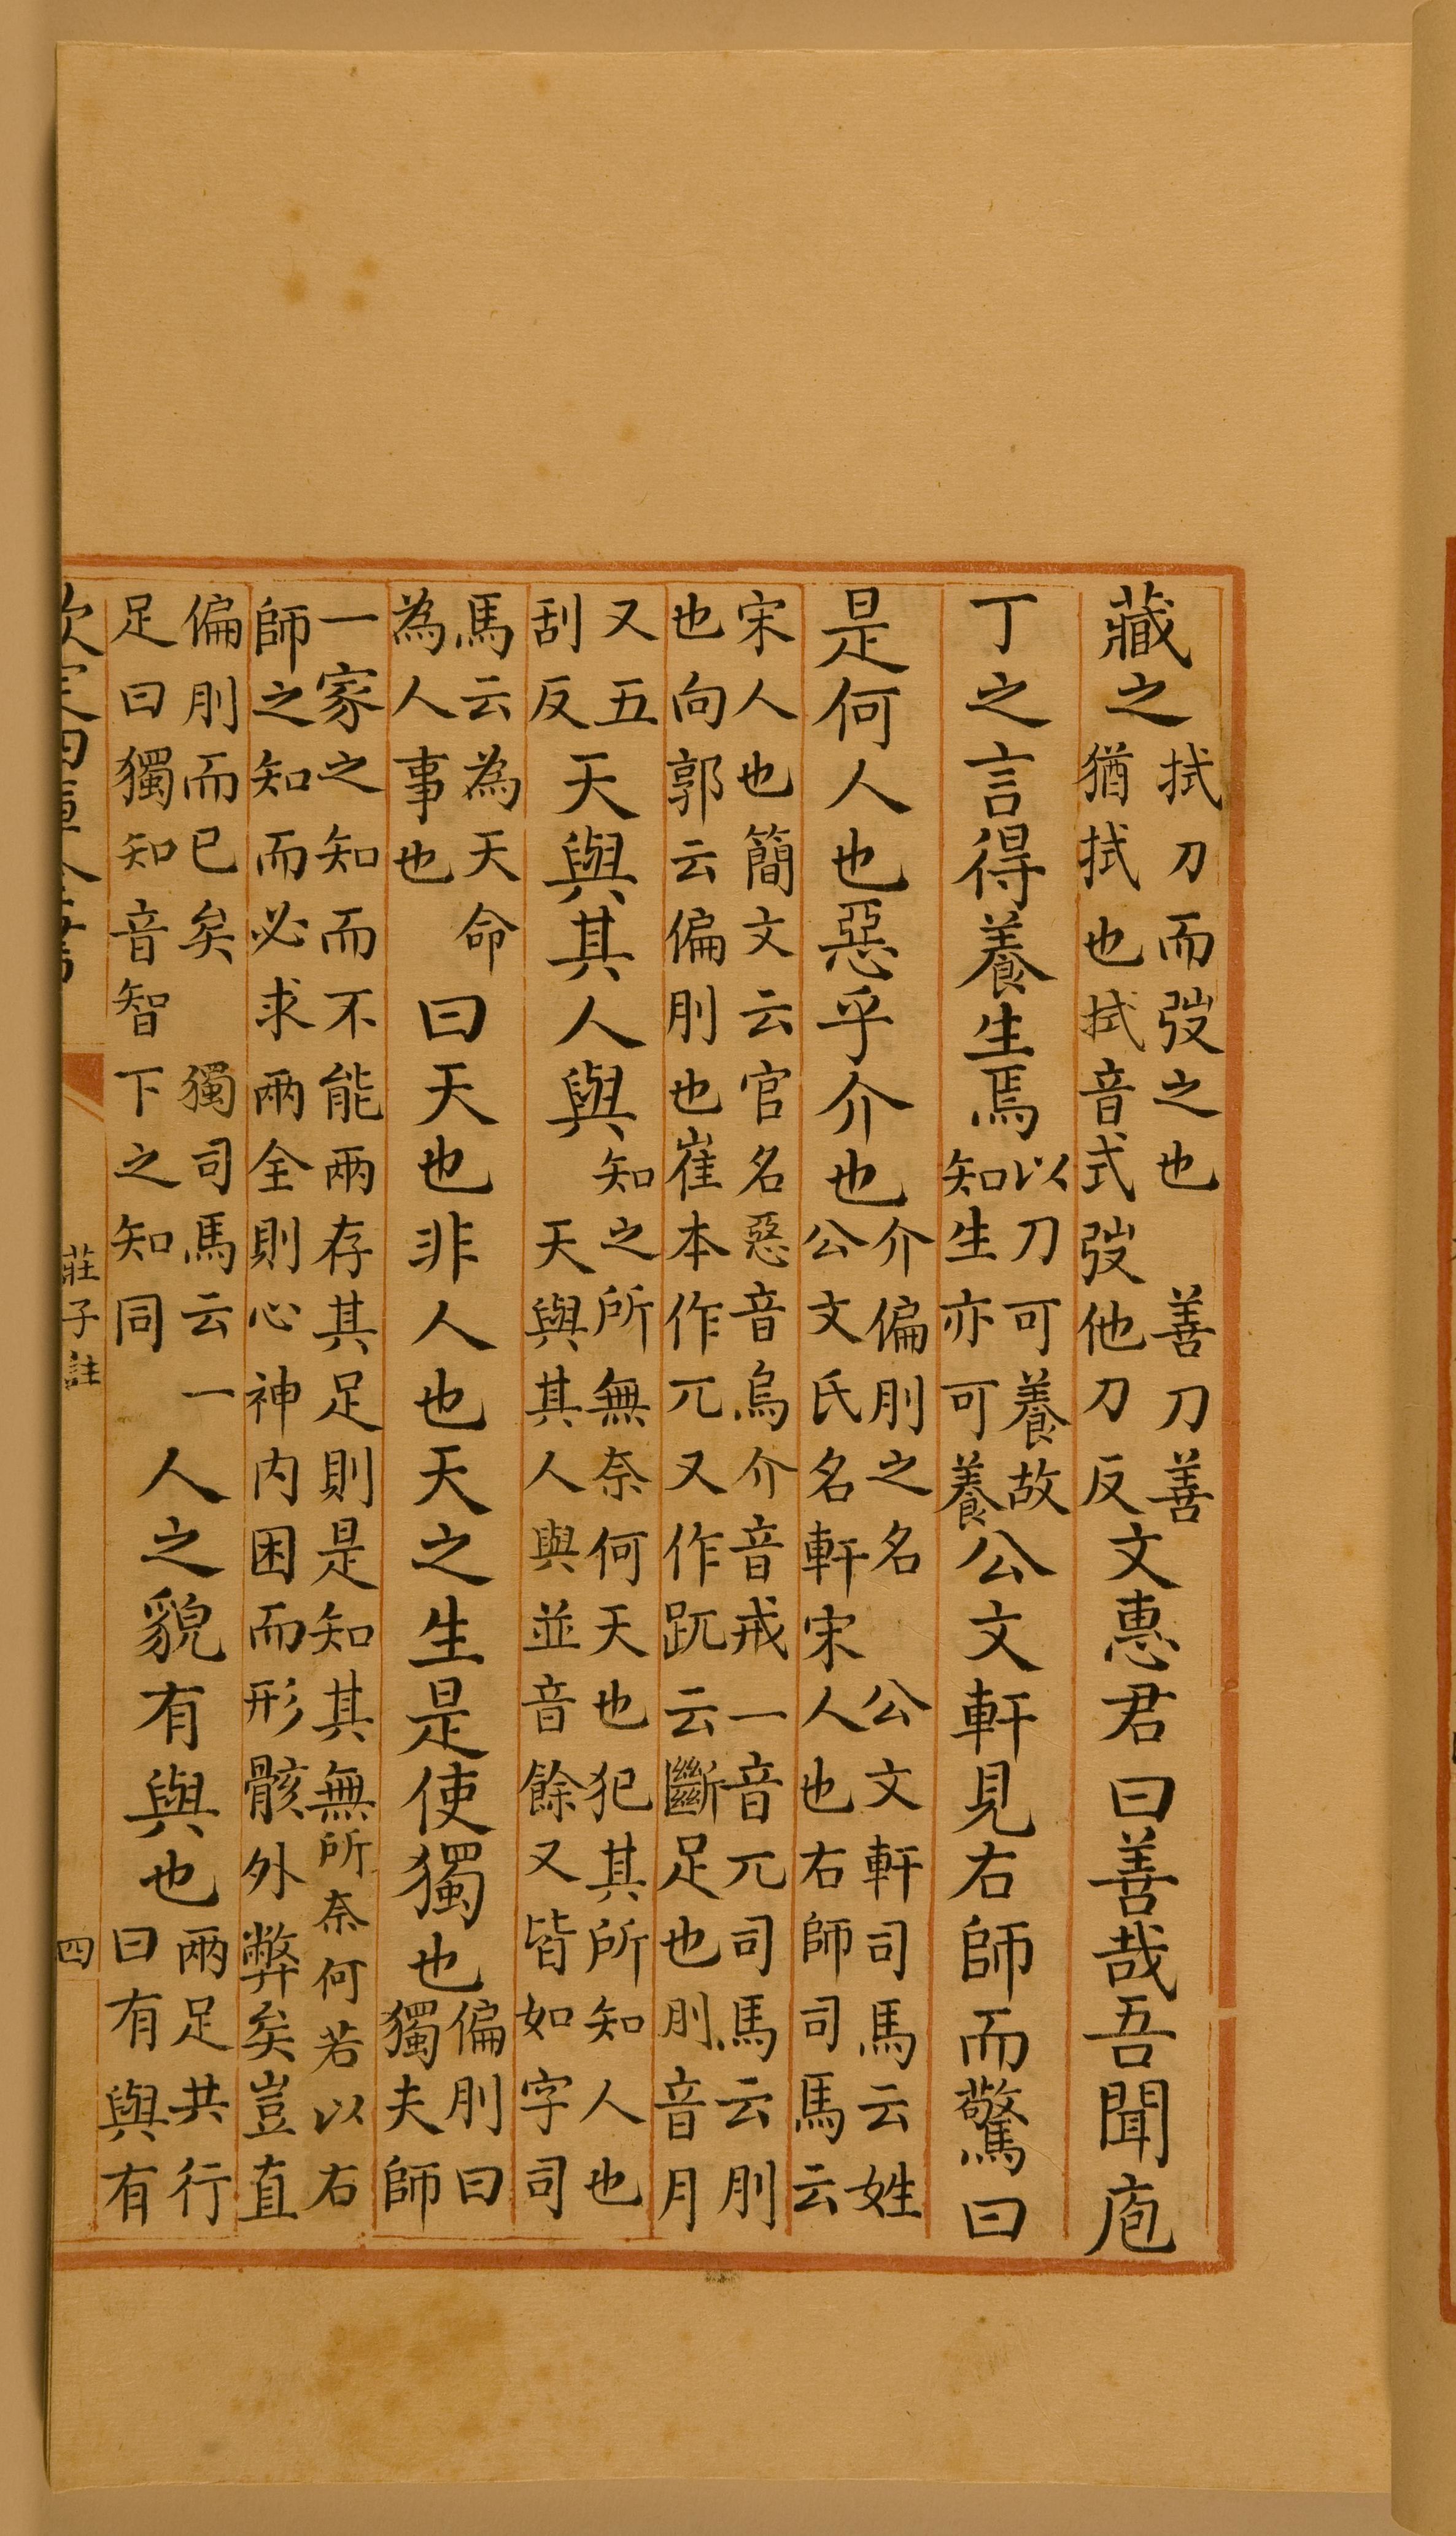 藏之拭刀而弢之也　善刀善猶拭也拭音式弢他刀反文惠君曰善哉吾聞庖
丁之言得養生焉以刀可養故知生亦可養公文軒見右師而驚曰
是何人也惡乎介也介偏刖之名　公文軒司馬云姓公文氏名軒宋人也右師司馬云
宋人也簡文云官名惡音烏介音戒一音兀司馬云刖也向郭云偏刖也崔本作兀又作𧿁云斷足也刖音月
又五刮反天與其人與知之所無奈何天也犯其所知人也天與其人與並音餘又皆如字司
馬云為天命為人事也曰天也非人也天之生是使獨也偏刖曰獨夫師
一家之知而不能兩存其足則是知其無所奈何若以右師之知而必求兩全則心神内困而形骸外弊矣豈直
偏刖而已矣　獨司馬云一足曰獨知音智下之知同人之貌有與也兩足共行曰有與有
欽定四庫全書
莊子註
四